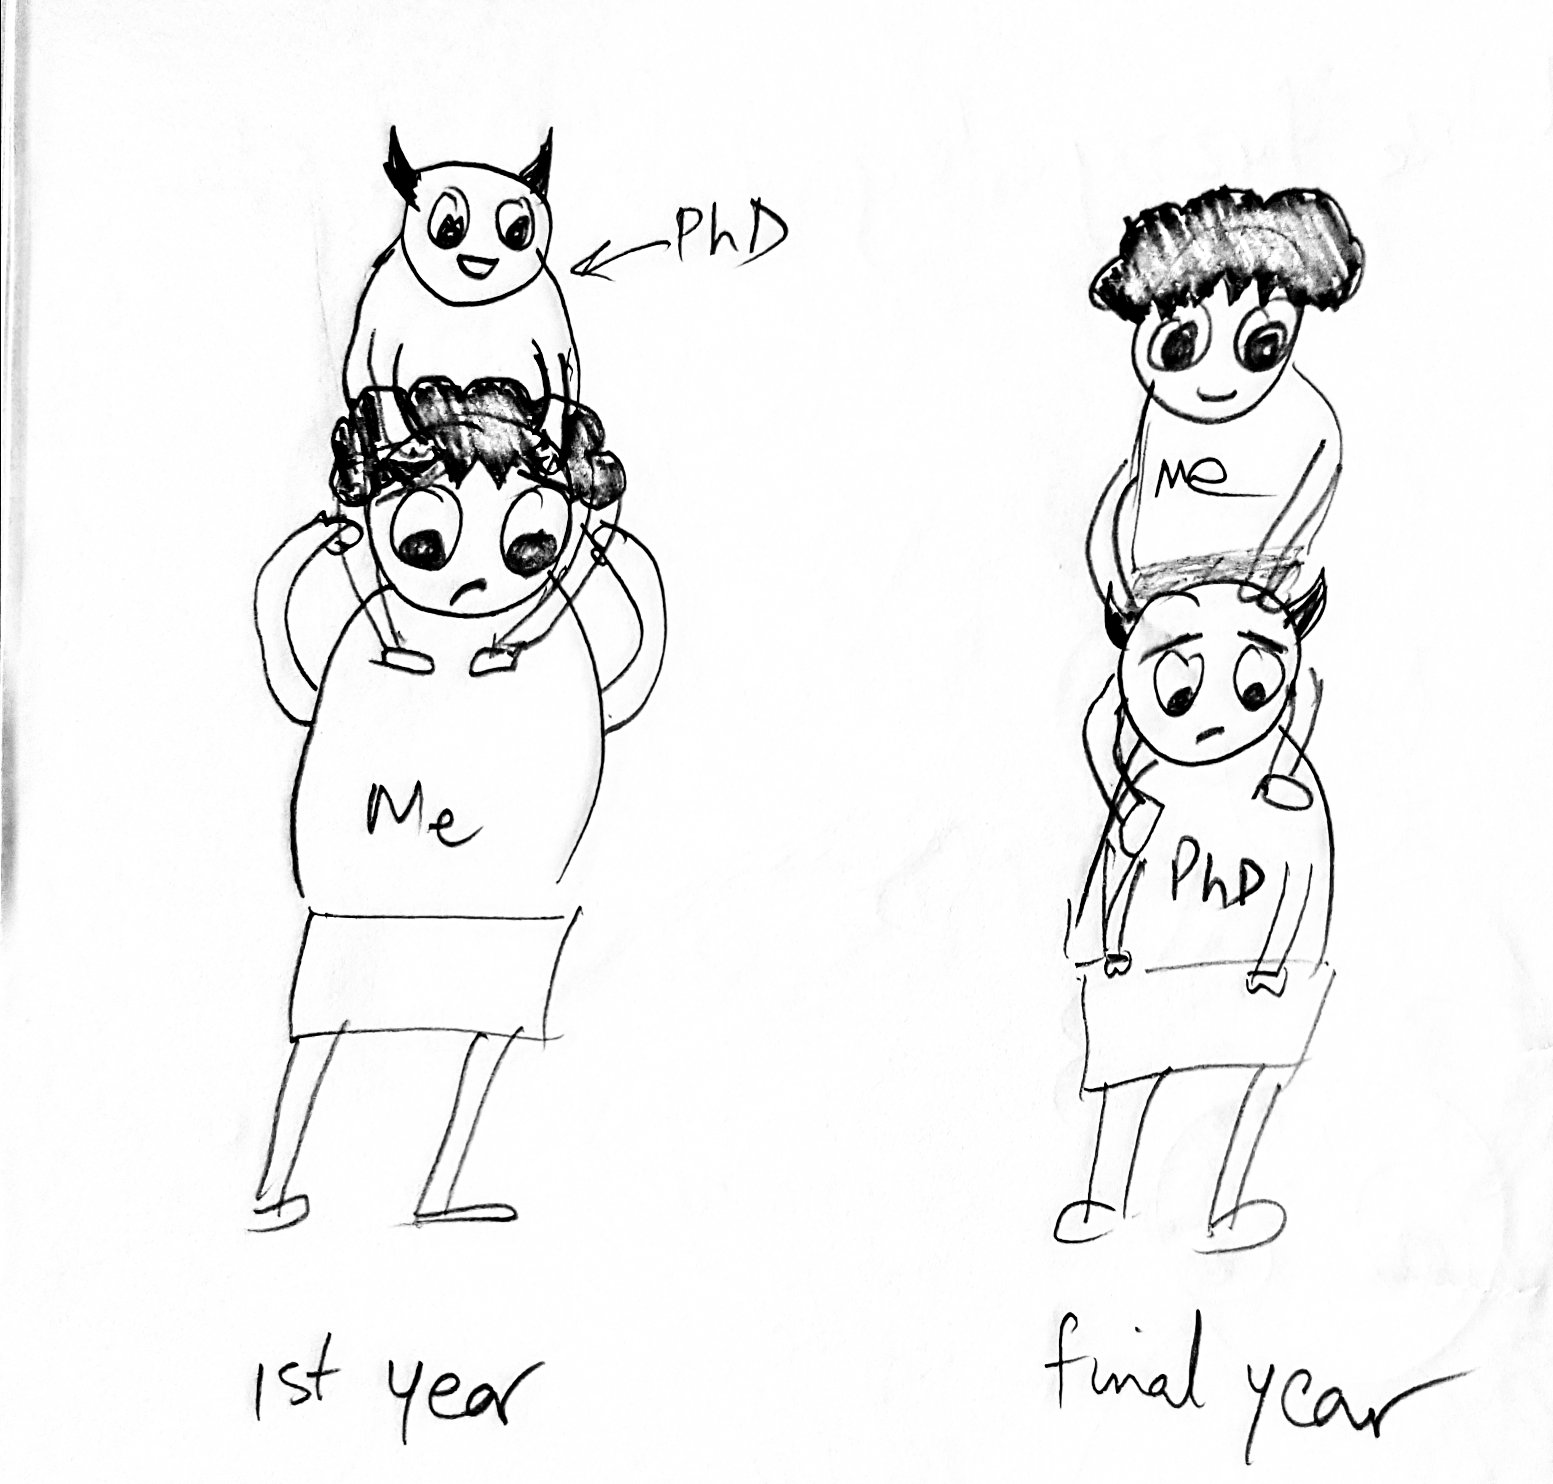 PhD
Me
1st year
Me
PhD
final year